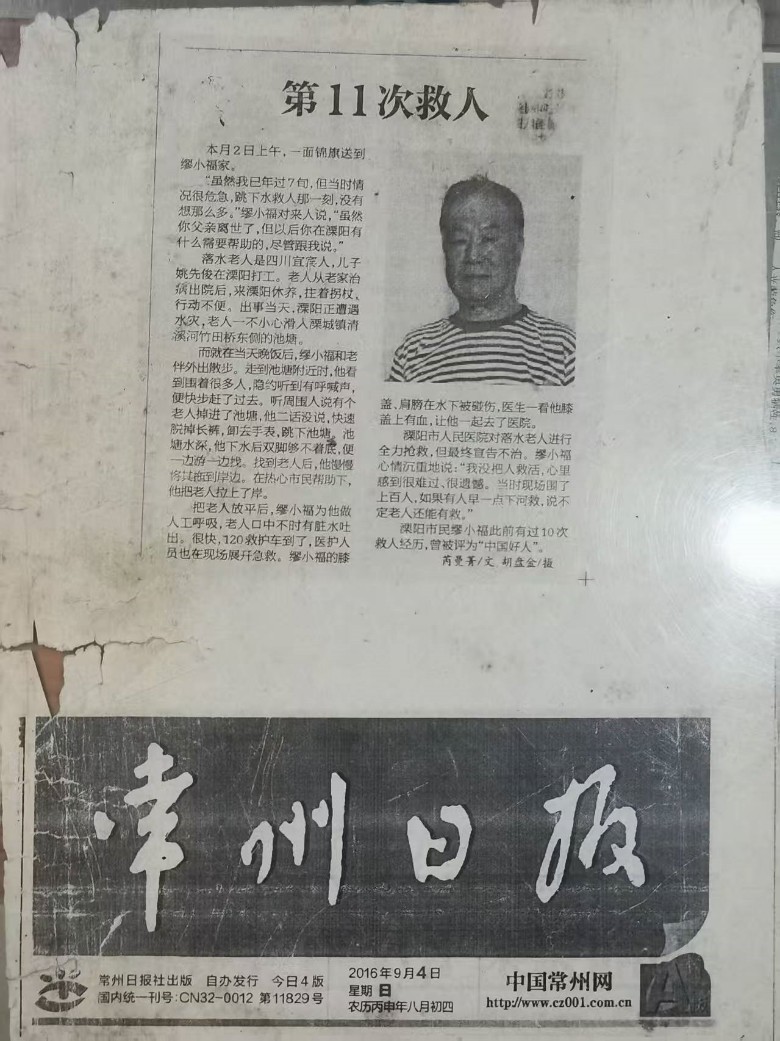 第11次救人
本月2日上午，一面锦旗送到
缪小福家。
“虽然我已年过7旬，但当时情
况很危急，跳下水救人那一刻，没有
想那么多。”缪小福对来人说，“虽然
你父亲离世了，但以后你在溧阳有
什么需要帮助的，尽管跟我说。”
落水老人是四川宜宾人，儿子
姚先俊在溧阳打工。老人从老家治
病出院后，来溧阳休养，拄着拐杖、
行动不便。出事当天，溧阳正遭遇
水灾，老人一不小心滑入溧城镇清
溪河竹田桥东侧的池塘。
而就在当天晚饭后，缪小福和老
伴外出散步。走到池塘附近时，他看
到围着很多人，隐约听到有呼喊声，
便快步赶了过去。听周围人说有个
老人掉进了池塘，他二话没说，快速
脱掉长裤，卸去手表，跳下池塘。池
塘水深，他下水后双脚够不着底，便
一边游一边找。找到老人后，他慢慢
将其拖到岸边。在热心市民帮助下，
他把老人拉上了岸。
把老人放平后，缪小福为他做
人工呼吸，老人口中不时有脏水吐
出。很快，120救护车到了，医护人
员也在现场展开急救。缪小福的膝
盖、肩膀在水下被碰伤，医生一看他膝
盖上有血，让他一起去了医院。
溧阳市人民医院对落水老人进行
全力抢救，但最终宣告不治。缪小福
心情沉重地说：“我没把人救活，心里
感到很难过、很遗憾。当时现场围了
上百人，如果有人早一点下河救，说不
定老人还能有救。”
溧阳市民缪小福此前有过10次
救人经历，曾被评为“中国好人”。
芮曼菁/文 胡盘金/摄
常州日报
常州日报社出版 自办发行 今日4版
国内统一刊号:CN32-0012 第11829号
2016年9月4日
星期日
农历丙申年八月初四
中国常州网
http://www.cz001.com.cn
A